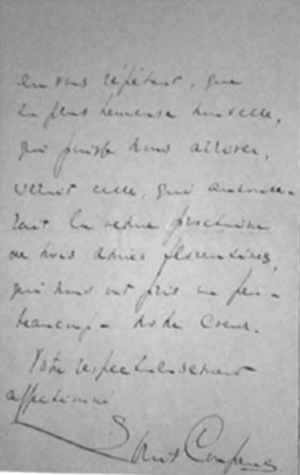 en vous répétant, que
la plus heureuse nouvelle,
qui puisse nous arriver,
serait celle, qui annonce-
rait la venue prochaine
de nos amies florentines,
qui nous ont pris un peu -
beaucoup - notre coeur.
Votre respectueusement
affectionné